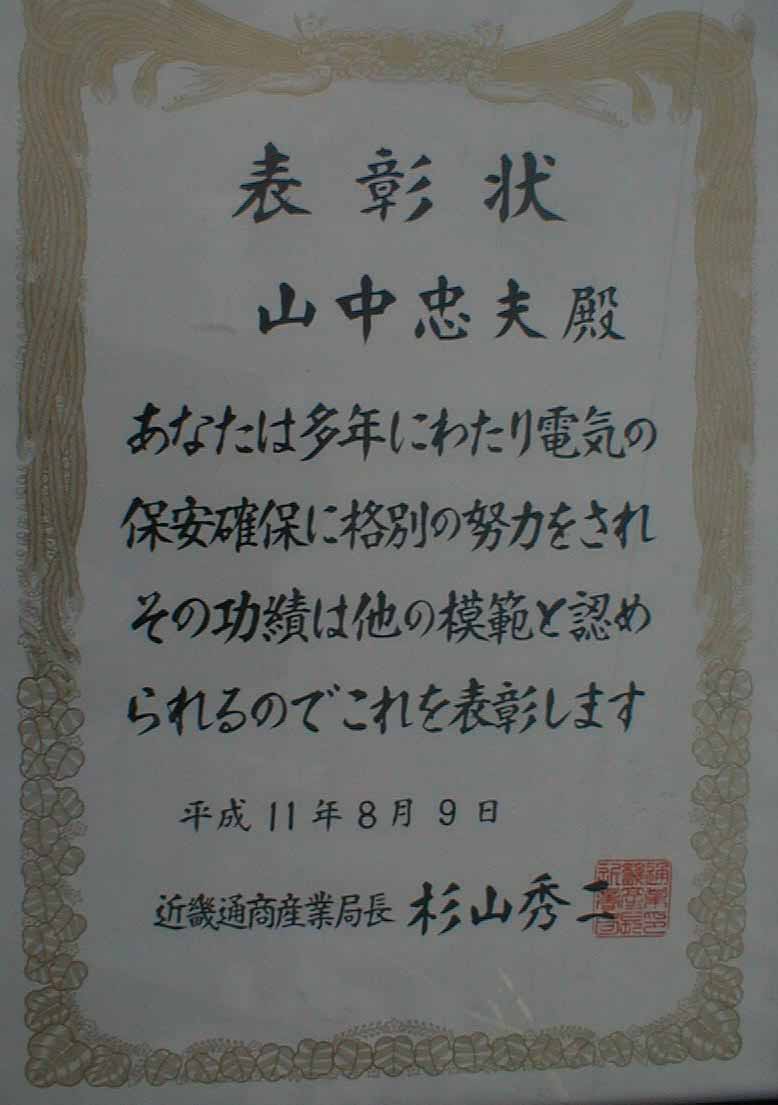 表彰状
山中忠夫殿
あなたは多年にわたり電気の
保安確保に格別の努力をされ
その功績は他の模範と認め
られるのでこれを表彰します
平成11年8月9日
近畿通商産業局長 杉山秀二